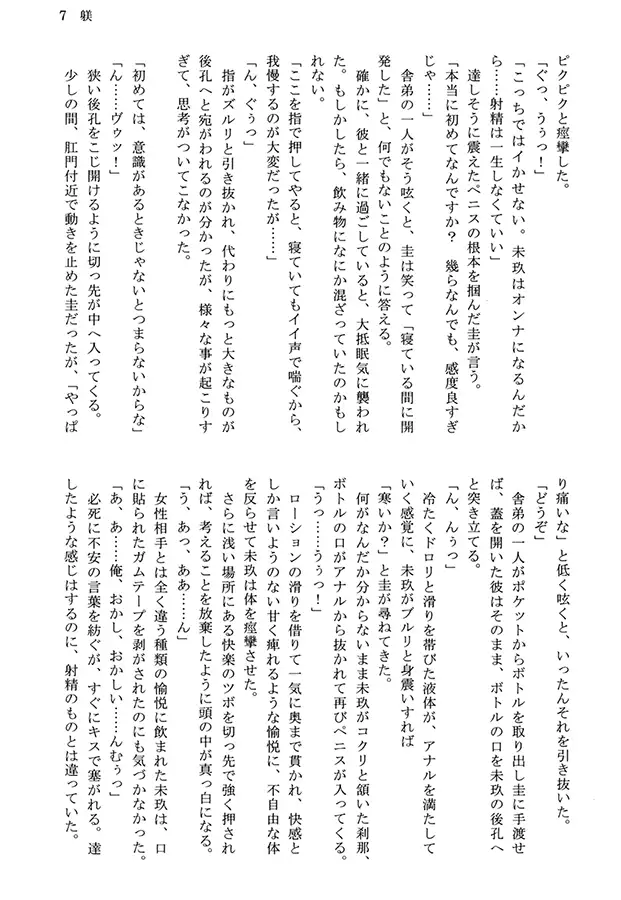 7　躾
ピクピクと痙攣した。
「ぐっ、うぅっ！」
「こっちではイかせない。未玖はオンナになるんだか
ら……射精は一生しなくていい」
達しそうに震えたペニスの根本を掴んだ圭が言う。
「本当に初めてなんですか？　幾らなんでも、感度良すぎ
じゃ……」
舎弟の一人がそう呟くと、圭は笑って「寝ている間に開
発した」と、何でもないことのように答える。
確かに、彼と一緒に過ごしていると、大抵眠気に襲われ
た。もしかしたら、飲み物になにか混ざっていたのかもし
れない。
「ここを指で押してやると、寝ていてもイイ声で喘ぐから、
我慢するのが大変だったが……」
「ん、ぐぅっ」
指がズルリと引き抜かれ、代わりにもっと大きなものが
後孔へと宛がわれるのが分かったが、様々な事が起こりす
ぎて、思考がついてこなかった。
「初めては、意識があるときじゃないとつまらないからな」
「ん……ヴゥッ！」
狭い後孔をこじ開けるように切っ先が中へ入ってくる。
少しの間、肛門付近で動きを止めた圭だったが、「やっぱ
り痛いな」と低く呟くと、いったんそれを引き抜いた。
「どうぞ」
舎弟の一人がポケットからボトルを取り出し圭に手渡せ
ば、蓋を開いた彼はそのまま、ボトルの口を未玖の後孔へ
と突き立てる。
「ん、んぅっ」
冷たくドロリと滑りを帯びた液体が、アナルを満たして
いく感覚に、未玖がブルリと身震いすれば
「寒いか？」と圭が尋ねてきた。
何がなんだか分からないまま未玖がコクリと頷いた刹那、
ボトルの口がアナルから抜かれて再びペニスが入ってくる。
「うっ……うぅっ！」
ローションの滑りを借りて一気に奥まで貫かれ、快感と
しか言いようのない甘く痺れるような愉悦に、不自由な体
を反らせて未玖は体を痙攣させた。
さらに浅い場所にある快楽のツボを切っ先で強く押され
れば、考えることを放棄したように頭の中が真っ白になる。
「う、あっ、ああ……ん」
女性相手とは全く違う種類の愉悦に飲まれた未玖は、口
に貼られたガムテープを剥がされたのにも気づかなかった。
「あ、あ……俺、おかし、おかしい……んむぅっ」
必死に不安の言葉を紡ぐが、すぐにキスで塞がれる。達
したような感じはするのに、射精のものとは違っていた。